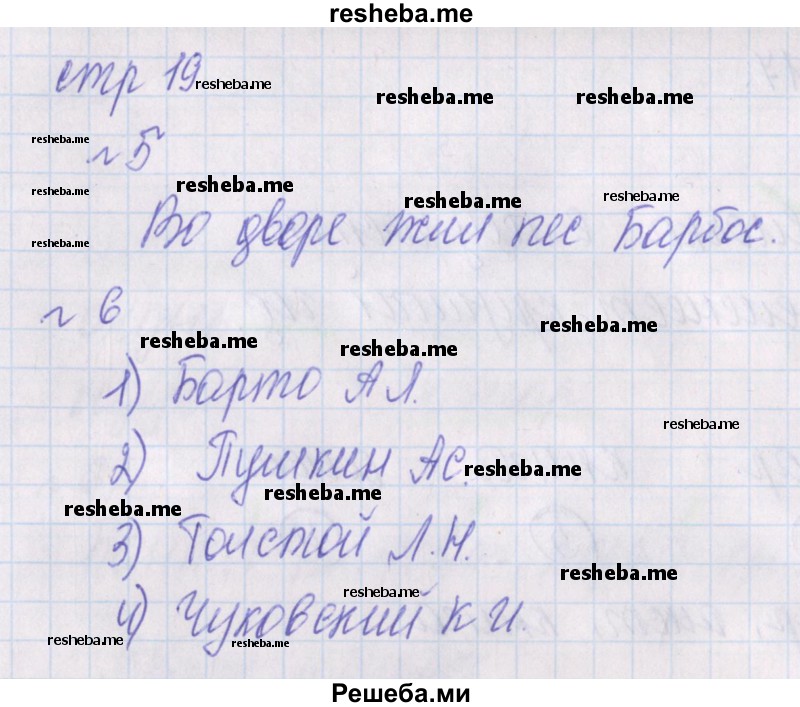 resheba.me
стр 19 resheba.me
resheba.me resheba.me
resheba.me
№ 5
resheba.me resheba.me
resheba.me resheba.me
Во дворе жил пес Барбос.
resheba.me
№ 6
resheba.me
resheba.me resheba.me
1) Барто А Л.
resheba.me
2) Пушкин А С. resheba.me
resheba.me
resheba.me
3) Толстой Л. Н.
resheba.me
resheba.me
4) Чуковский К И.
resheba.me resheba.me
Решеба.ми